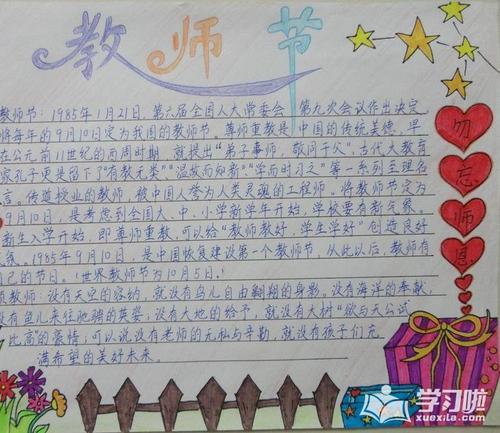 教师节
教师节：1985年1月21日，第六届全国人大常委会 第九次会议作出决定，
将每年的9月10日定为我国的教师节。尊师重教是中国的传统美德，早
在公元前11世纪的西周时期，就提出“弟子事师，敬同于父”。古代大教育
家孔子更是留下“有教无类”“温故而知新”“学而时习之”等一系列至理名
言。传道授业的教师，被中国人誉为人类灵魂的工程师。将教师节定为
9月10日，是考虑到全国大、中、小学新学年开始，学校要有新气象。
新生入学开始，即尊师重教，可以给“教师教好，学生学好”创造良好
气氛。1985年9月10日，是中国恢复建设第一个教师节，从此以后，教师有
自己的节日。（世界教师节为10月5日。）
教师：没有天空的容纳，就没有鸟儿自由翱翔的身影。没有海洋的奉献，
没有鱼儿来往驰骋的英姿；没有大地的给予，就没有大树“欲与天公试
比高”的豪情；可以说没有老师的无私与辛勤，就没有孩子们充
满希望的美好未来。
勿
忘
师
恩
学习啦
xuexila.com